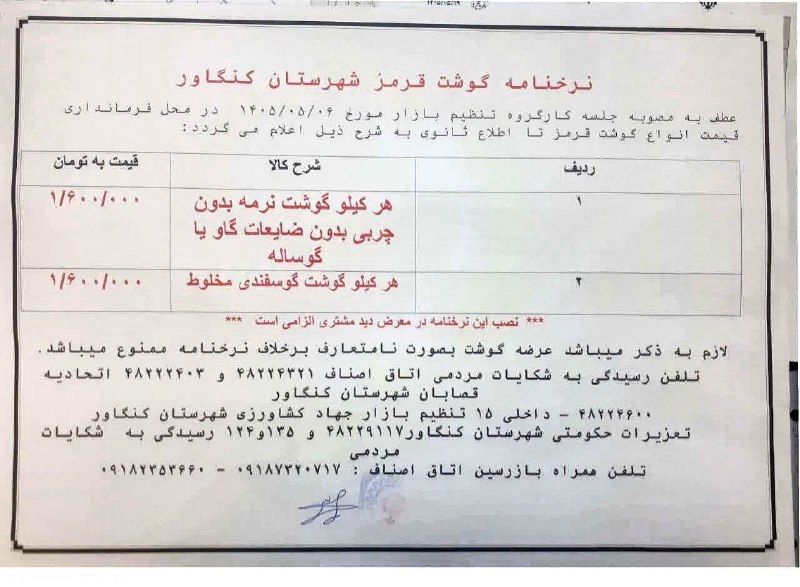 تاریخ ۱۴۰۵/۰۵/۱۹
نرخنامه گوشت قرمز شهرستان کنگاور
عطف به مصوبه جلسه کارگروه تنظیم بازار مورخ ۱۴۰۵/۰۵/۰۶ در محل فرمانداری
قیمت انواع گوشت قرمز تا اطلاع ثانوی به شرح ذیل اعلام می گردد:
ردیف شرح کالا قیمت به تومان
۱ هر کیلو گوشت نرمه بدون ۱/۶۰۰/۰۰۰
چربی بدون ضایعات گاو یا
گوساله
۲ هر کیلو گوشت گوسفندی مخلوط ۱/۶۰۰/۰۰۰
*** نصب این نرخنامه در معرض دید مشتری الزامی است ***
لازم به ذکر میباشد عرضه گوشت بصورت نامتعارف برخلاف نرخنامه ممنوع میباشد.
تلفن رسیدگی به شکایات مردمی اتاق اصناف ۴۸۲۲۴۳۲۱ و ۴۸۲۲۲۴۰۳ اتحادیه
قصابان شهرستان کنگاور
۴۸۲۲۴۶۰۰ - داخلی ۱۵ تنظیم بازار جهاد کشاورزی شهرستان کنگاور
تعزیرات حکومتی شهرستان کنگاور۴۸۲۲۹۱۱۷ و ۱۳۵و۱۲۴ رسیدگی به شکایات
مردمی
تلفن همراه بازرسین اتاق اصناف : ۰۹۱۸۷۳۲۰۷۱۷ - ۰۹۱۸۲۳۵۳۶۶۰